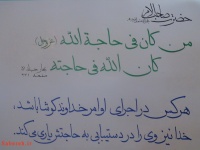 من كان فى حاجة الله (عزوجل)
كان الله فى حاجته
هر کس در اجرای اوامر خداوند کوشا باشد،
خدا نیز وی را در دستیابی به حاجتش یاری می کند.